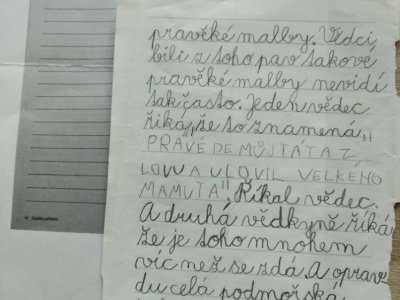 pravěké malby. Vědci,
bili z toho pav takove
pravěké malby nevidí
tak často. Jeden vědec
říká, že to znamená „
PRÁVĚ DE MŮJ TÁTA Z
LOVU A ULOVIL VELKÉHO
MAMUTA" Říkal vědec.
A druhá vědkyně říká
že je toho mnohem
víc než se zdá. A oprav
du celá podmořská